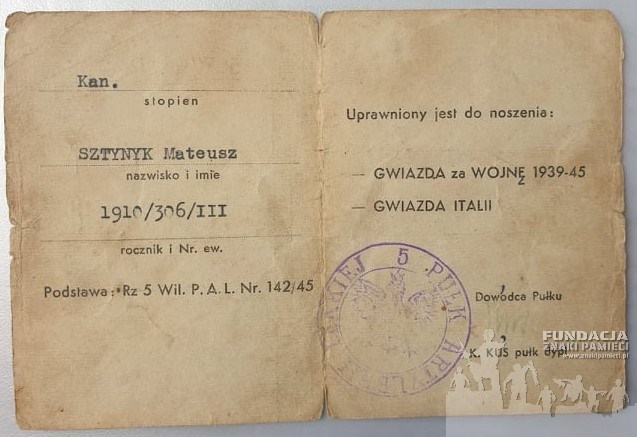 Kan.
stopien
SZTYNYK Mateusz
nazwisko i imię
1910/306/III
rocznik i Nr. ew.
Podstawa: Rz 5 Wil. P. A. L. Nr. 142/45
Uprawniony jest do noszenia:
— GWIAZDA za WOJNĘ 1939-45
— GWIAZDA ITALII
5 PUŁK ARTYLE
Dowódca Pułku
K. KUŚ pułk dypl
FUNDACJA
ZNAKI PAMIĘCI
www.znakipamieci.pl